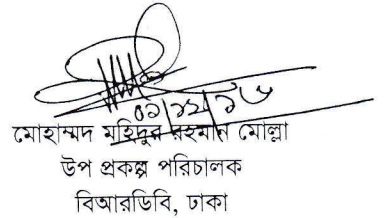 ০১/১২/১৬
মোহাম্মদ মহিদুর রহমান মোল্লা
উপ প্রকল্প পরিচালক
বিআরডিবি, ঢাকা